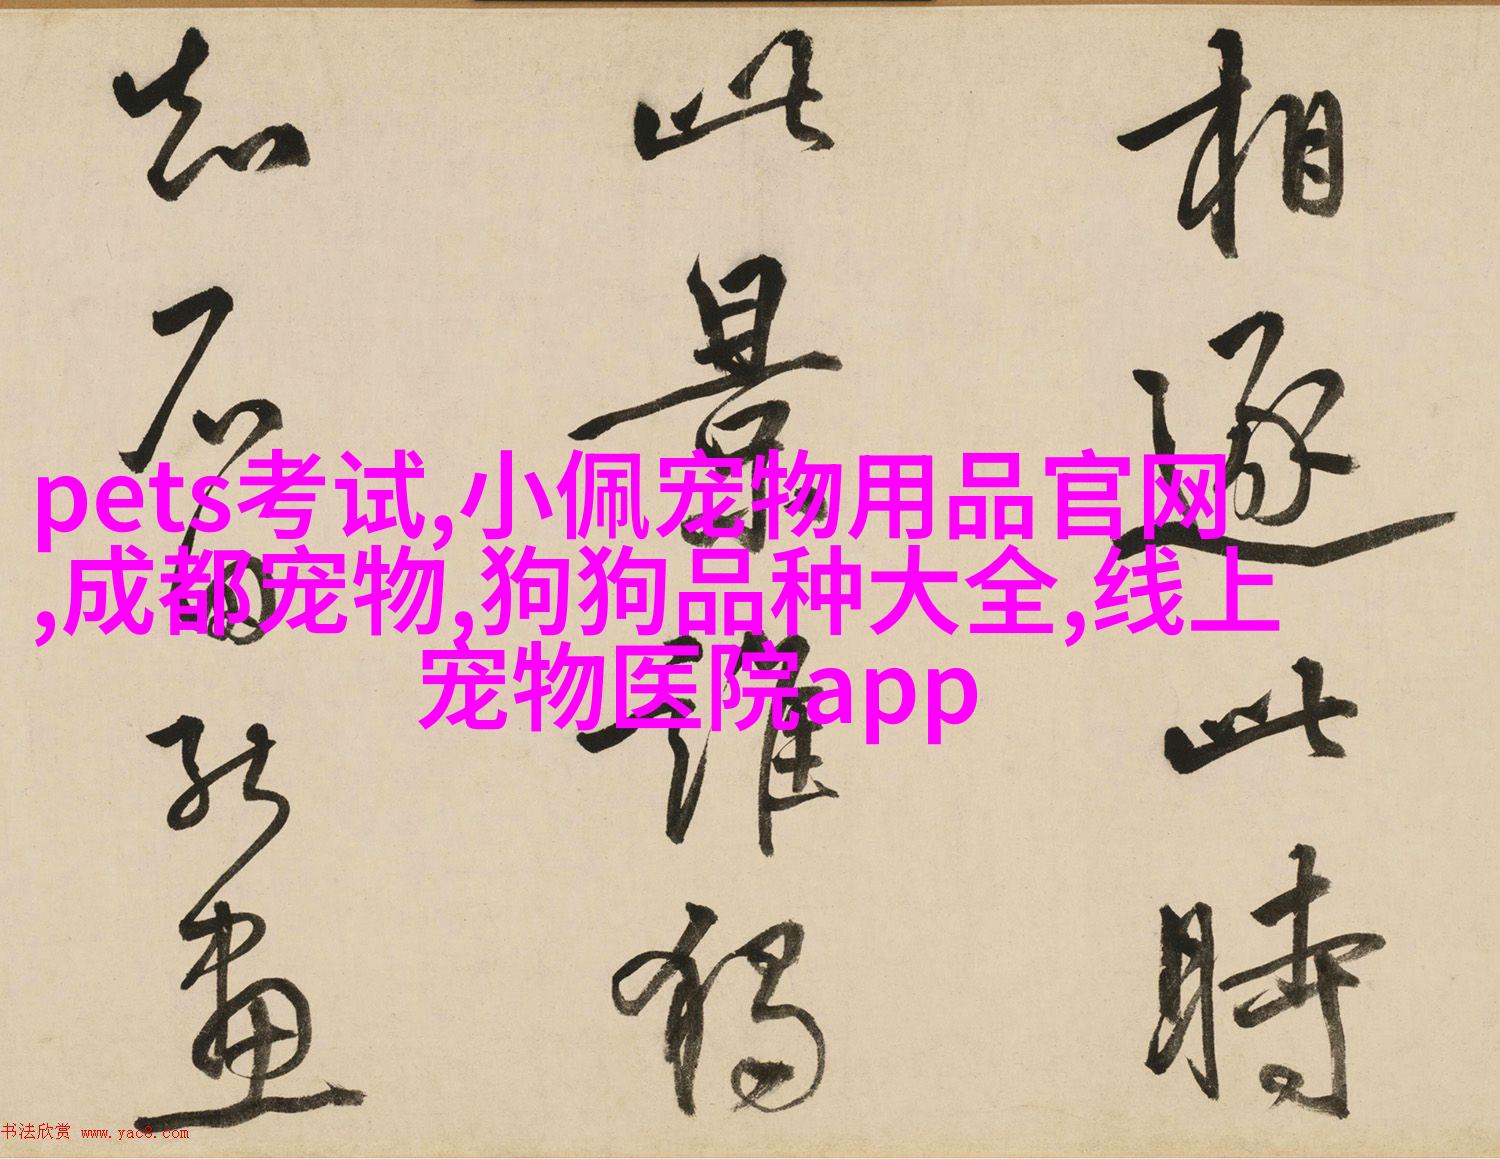 相逐此時
此景誰獨
知君能畫
pets考试,小佩宠物用品官网
,成都宠物,狗狗品种大全,线上
宠物医院app
书法欣赏 www.yac8.com